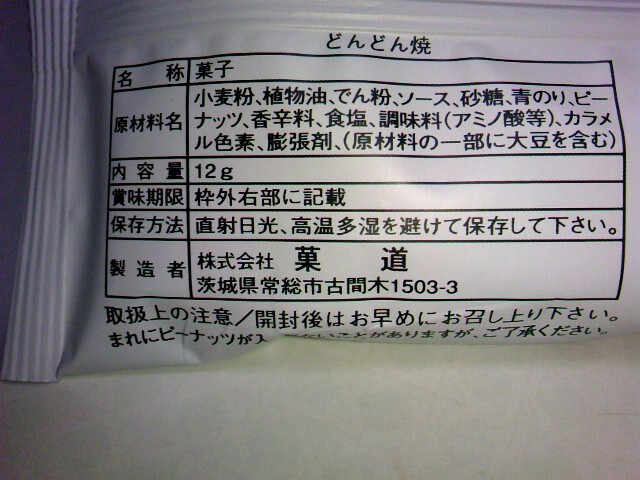 どんどん焼
名称 菓子
原材料名 小麦粉、植物油、でん粉、ソース、砂糖、青のり、ピー
ナッツ、香辛料、食塩、調味料(アミノ酸等)、カラメ
ル色素、膨張剤、(原材料の一部に大豆を含む)
内容量 12g
賞味期限 枠外右部に記載
保存方法 直射日光、高温多湿を避けて保存して下さい。
製造者 株式会社 菓道
茨城県常総市古間木1503-3
取扱上の注意/開封後はお早めにお召し上り下さい。
まれにピーナッツが入 ないことがありますが、ご了承ください。